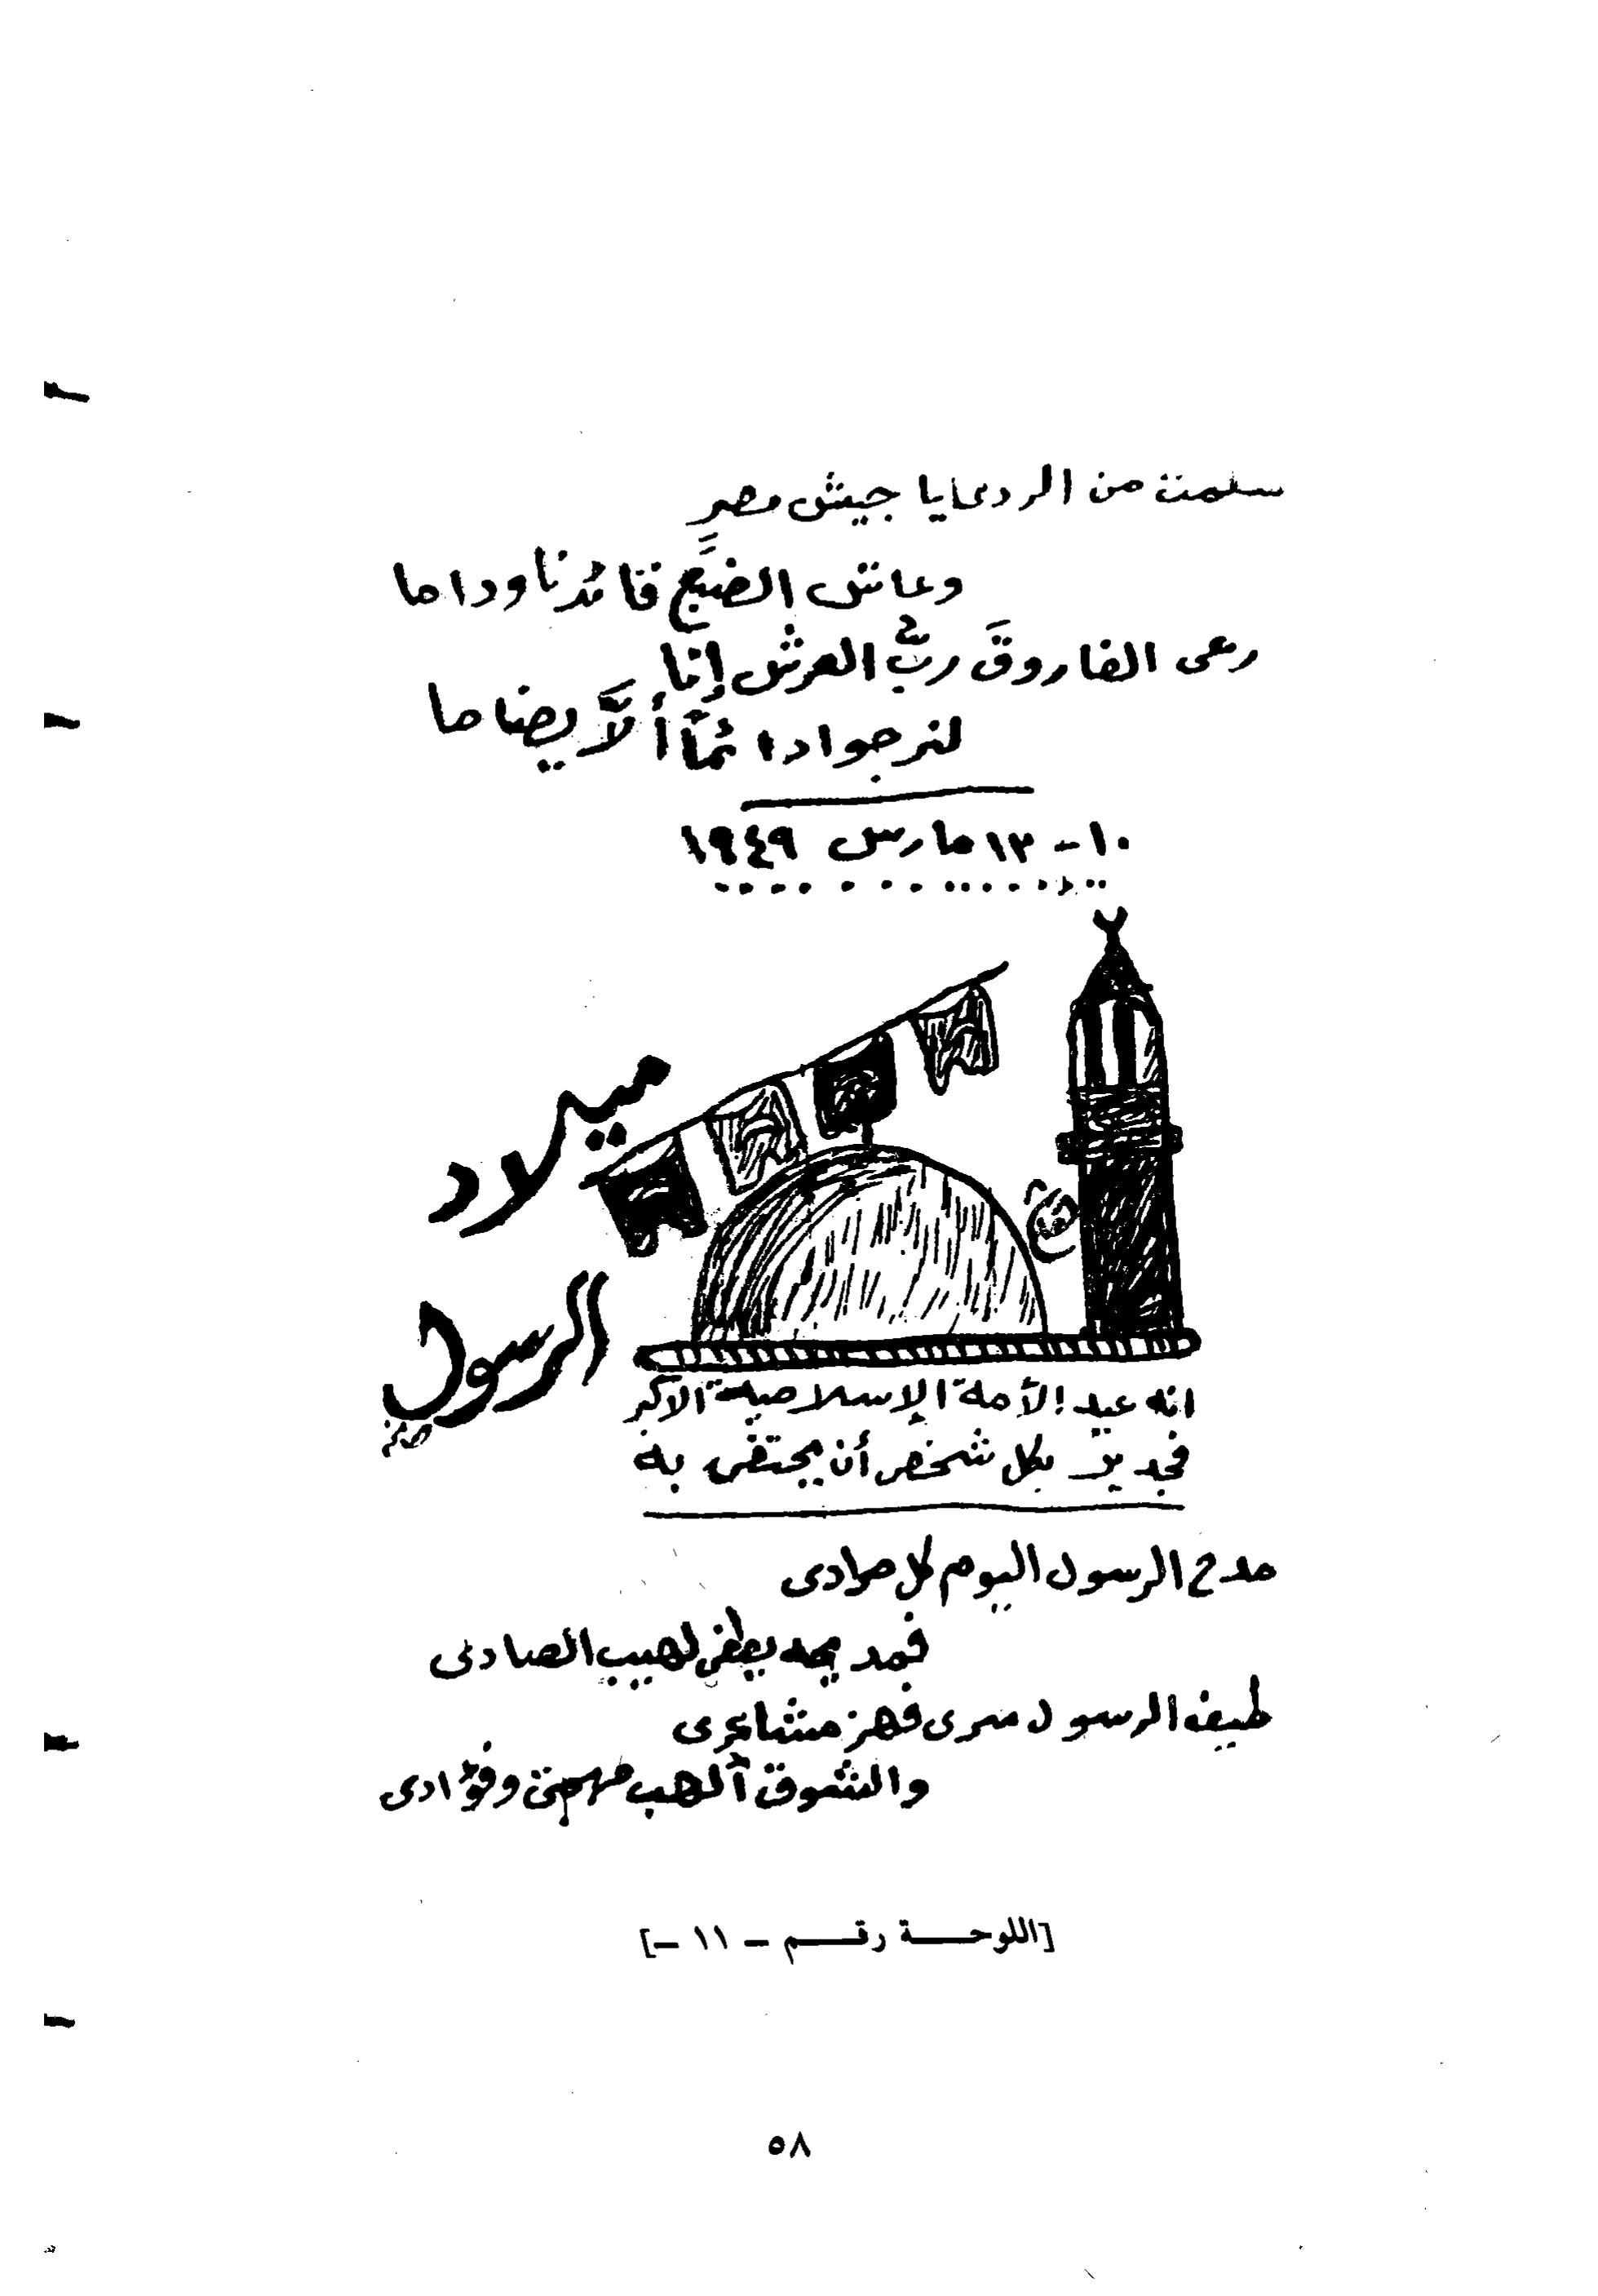 سلمت من الردى يا جيش مصرٍ
وعاش الضبع قائدنا وداما
رعى الفاروقَ ربُّ العرش إنا
لنرجوا دائماً ألاَّ يضاما
١٠ - ١٣ مارس ١٩٤٩
ميلاد
الرسول
انه عيد الأمة الإسلامية الأكبر
فجدير بكل شخص أن يحتفى به
مدح الرسول اليوم كل مرادى
فمديحه يطفى لهيب الصادى
طيف الرسول سرى فهز مشاعرى
والشوق ألهب مهجتى وفؤادى
[اللوحة رقم - ١١ -]
٥٨